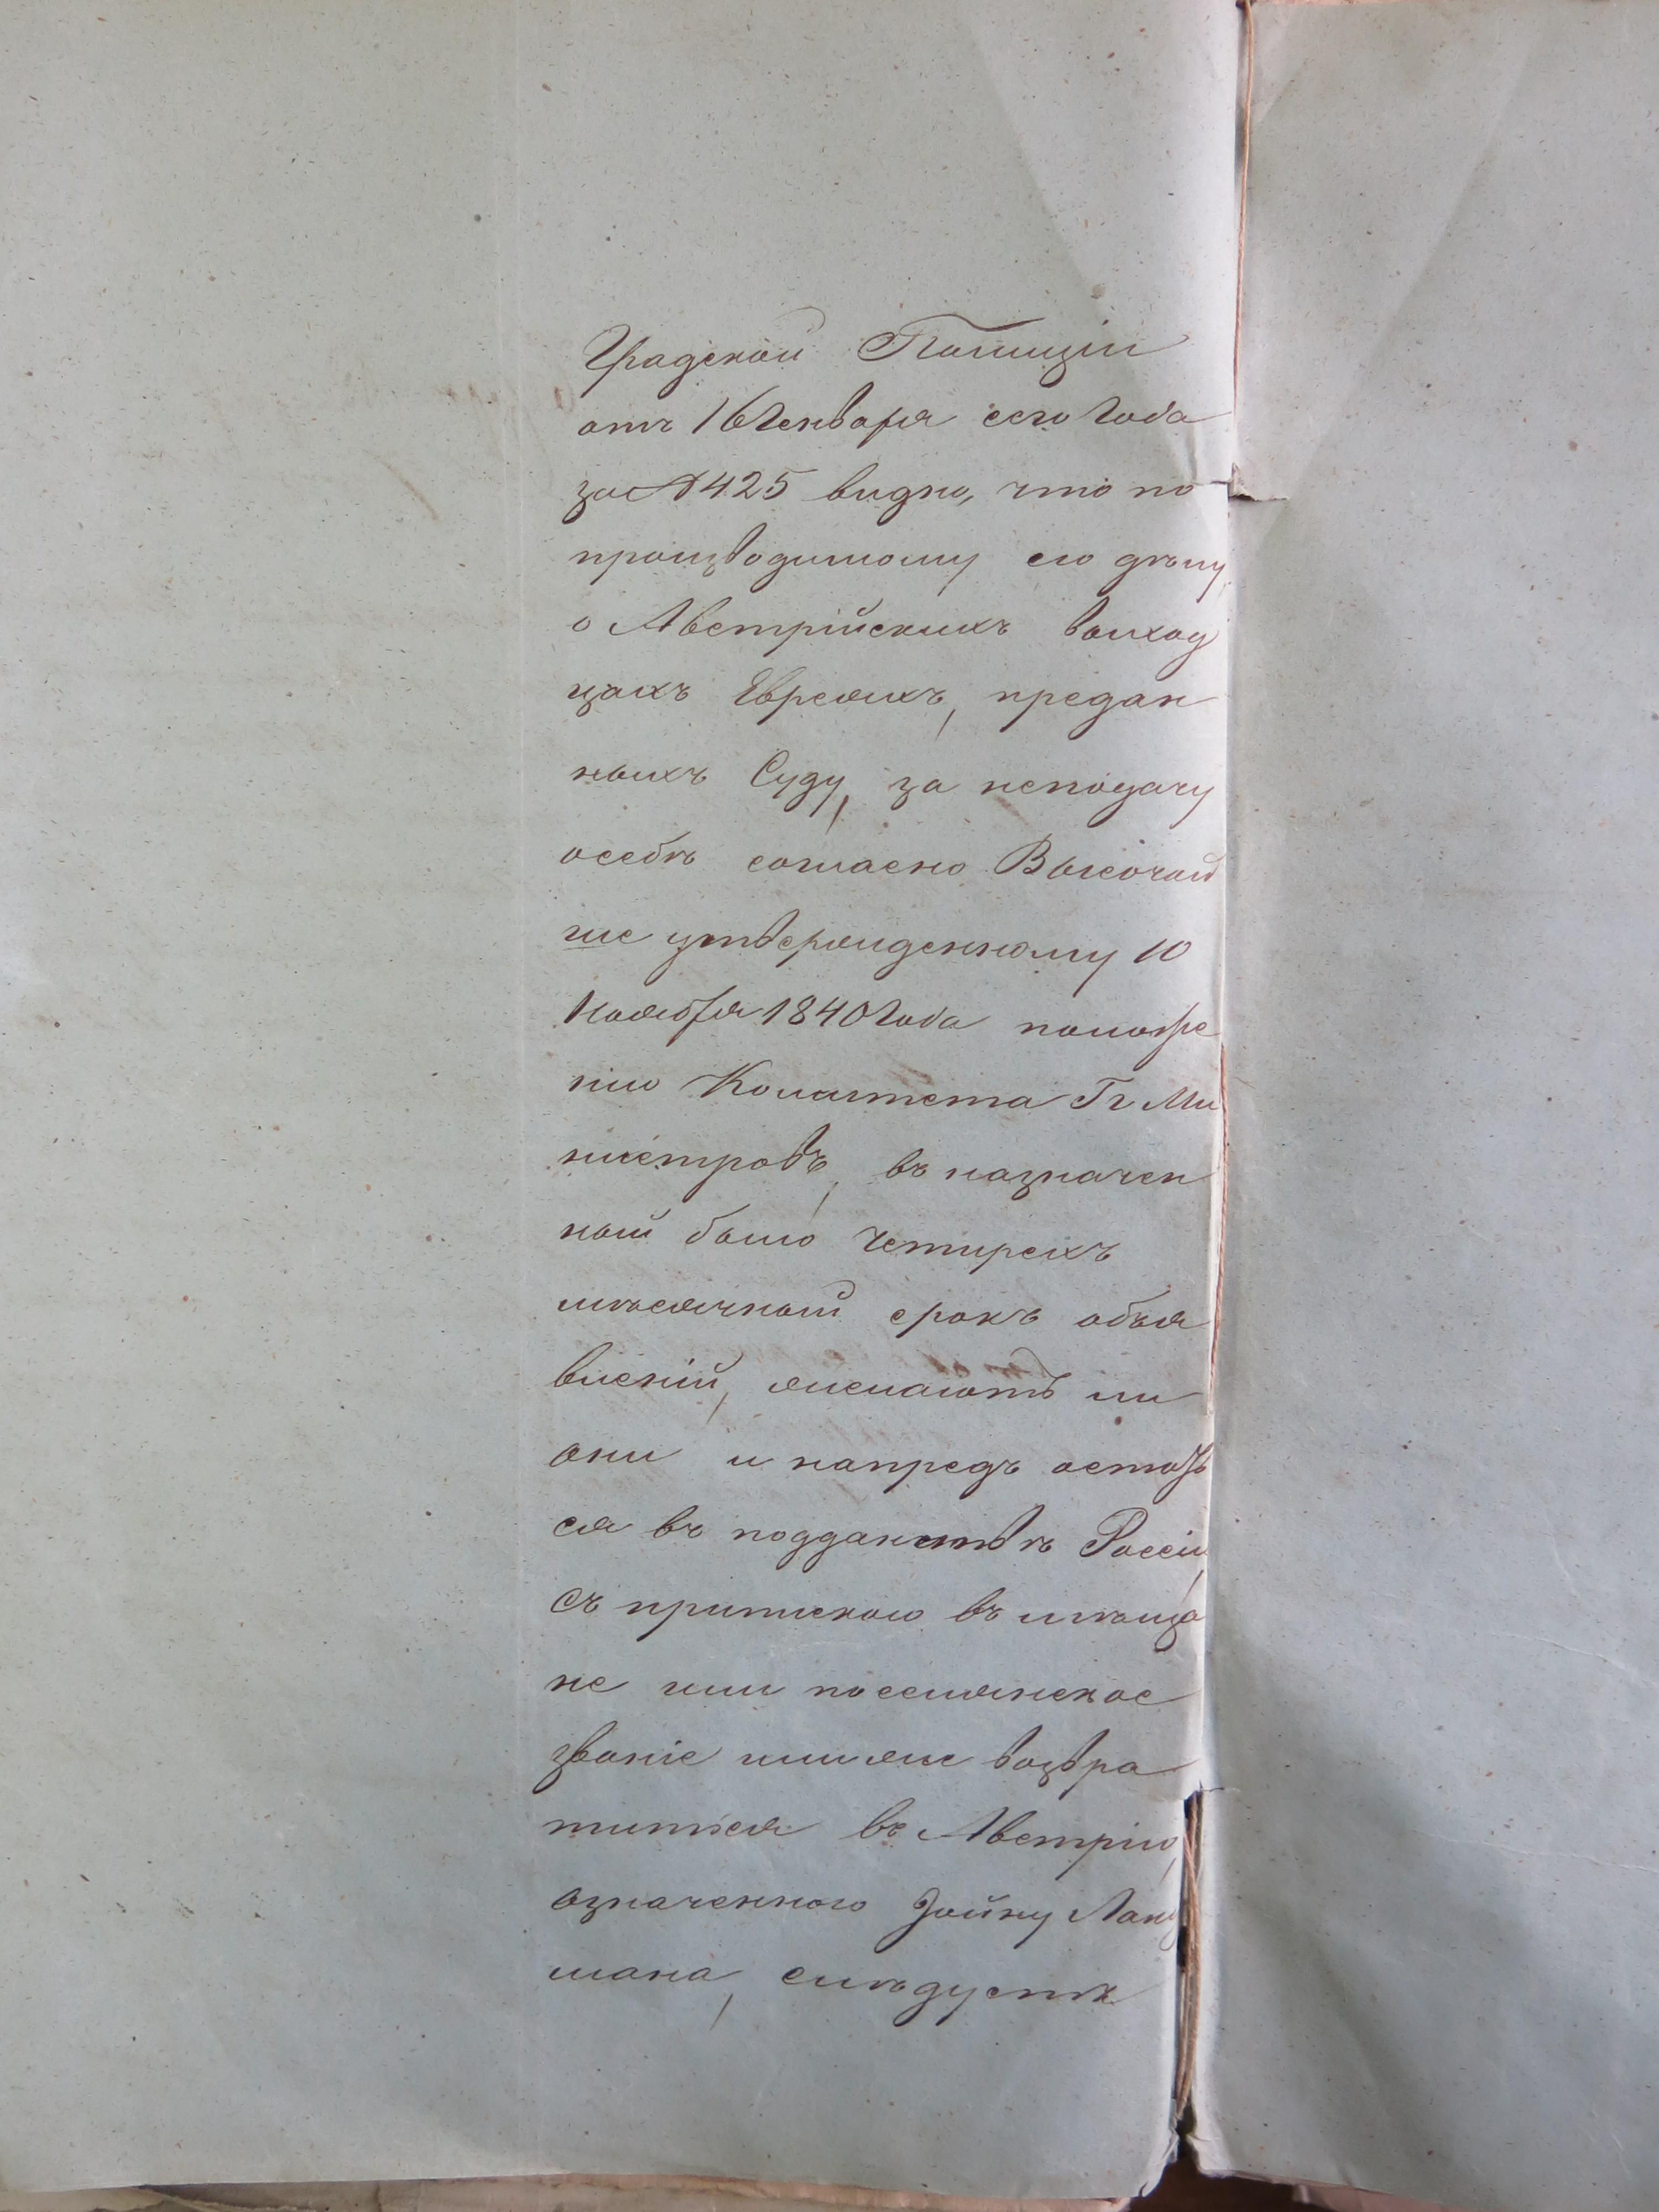 Градской Полиціи
отъ 16 Генваря сего года
за № 425 видно, что по
производимому ею дѣлу
о Австрійскихъ выход
цахъ Евреяхъ, предан
ныхъ Суду, за неподачу
осебѣ согласно Высочай
ше утвержденному 10
Ноября 1840 года положе
нію Комитета Гг Ми
нистровъ, въ назначен
ный было четырехъ
мѣсячный срокъ объя
вленій, желаютъ ли
они и напредъ остать
ся въ подданствѣ Россіи,
съ припискою въ мѣща
не или поселянское
званіе или же возвра
титься въ Австрію,
означенного Зайну Ланд
мана, слѣдуетъ